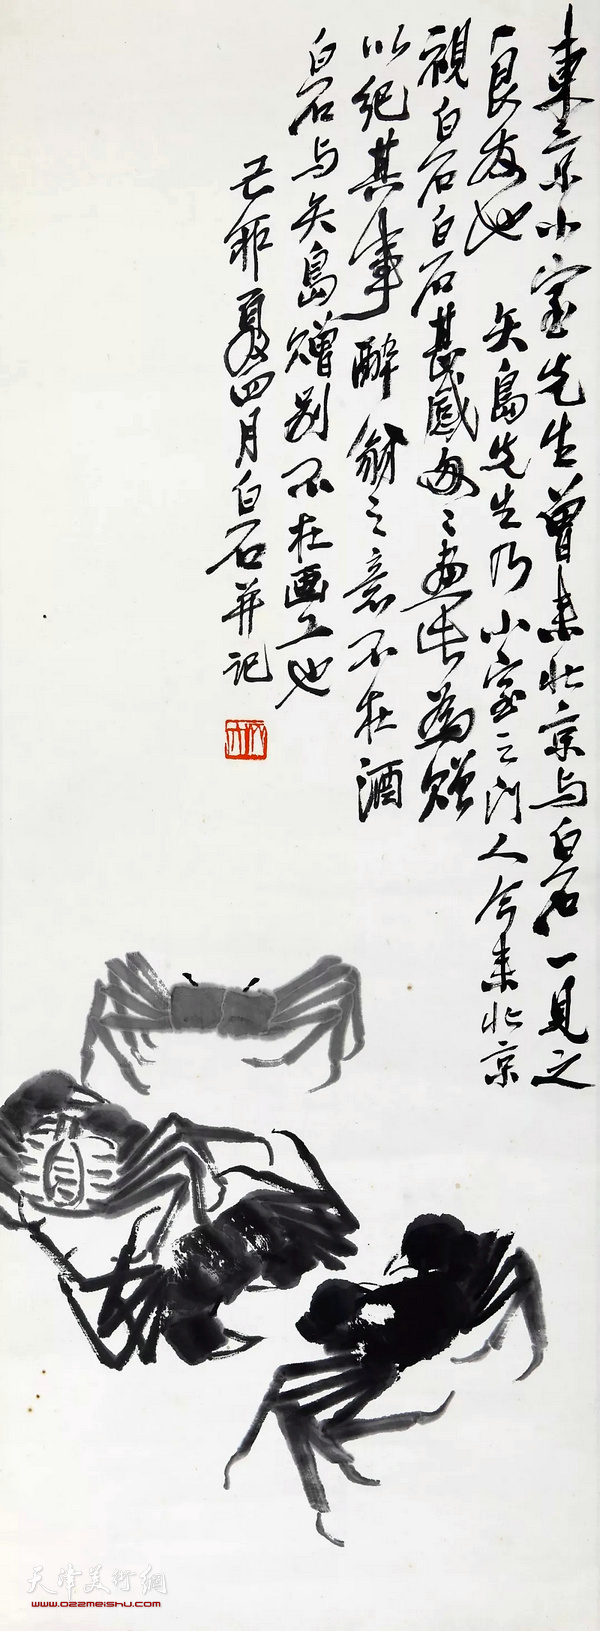 東京小室先生曾来北京与白石一見之
良友也 矢島先生乃小室之门人今来北京
視白石白石甚感每々画此為贈
以紀其事醉翁之意不在酒
白石与矢島贈别不在画工也
夏四月白石并记
天津美術網
www.022meishu.com